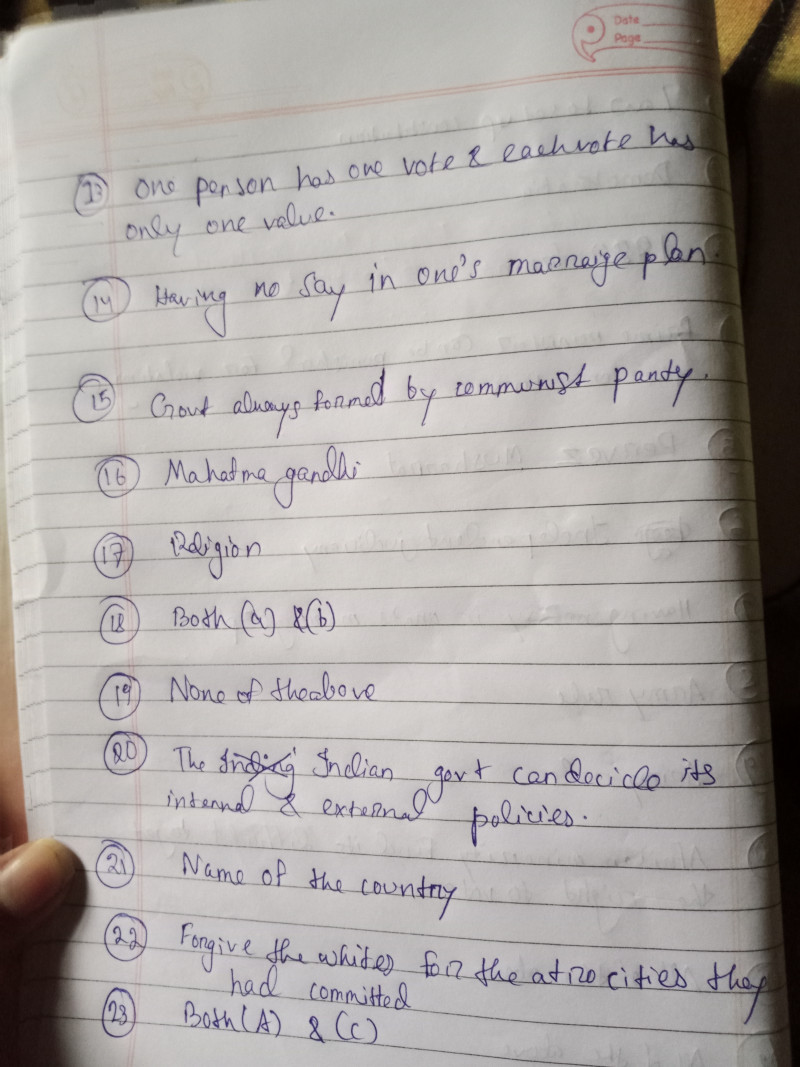 Date
Page
13 One person has one vote & each vote has
only one value.
14 Having no say in one's marraige plan.
15 Govt always formed by communist party.
16 Mahatma gandhi
17 Religion
18 Both (a) & (b)
19 None of the above
20 The Indian govt can decide its
internal & external policies.
21 Name of the country
22 Forgive the whites for the atrocities they
had committed
23 Both (A) & (C)